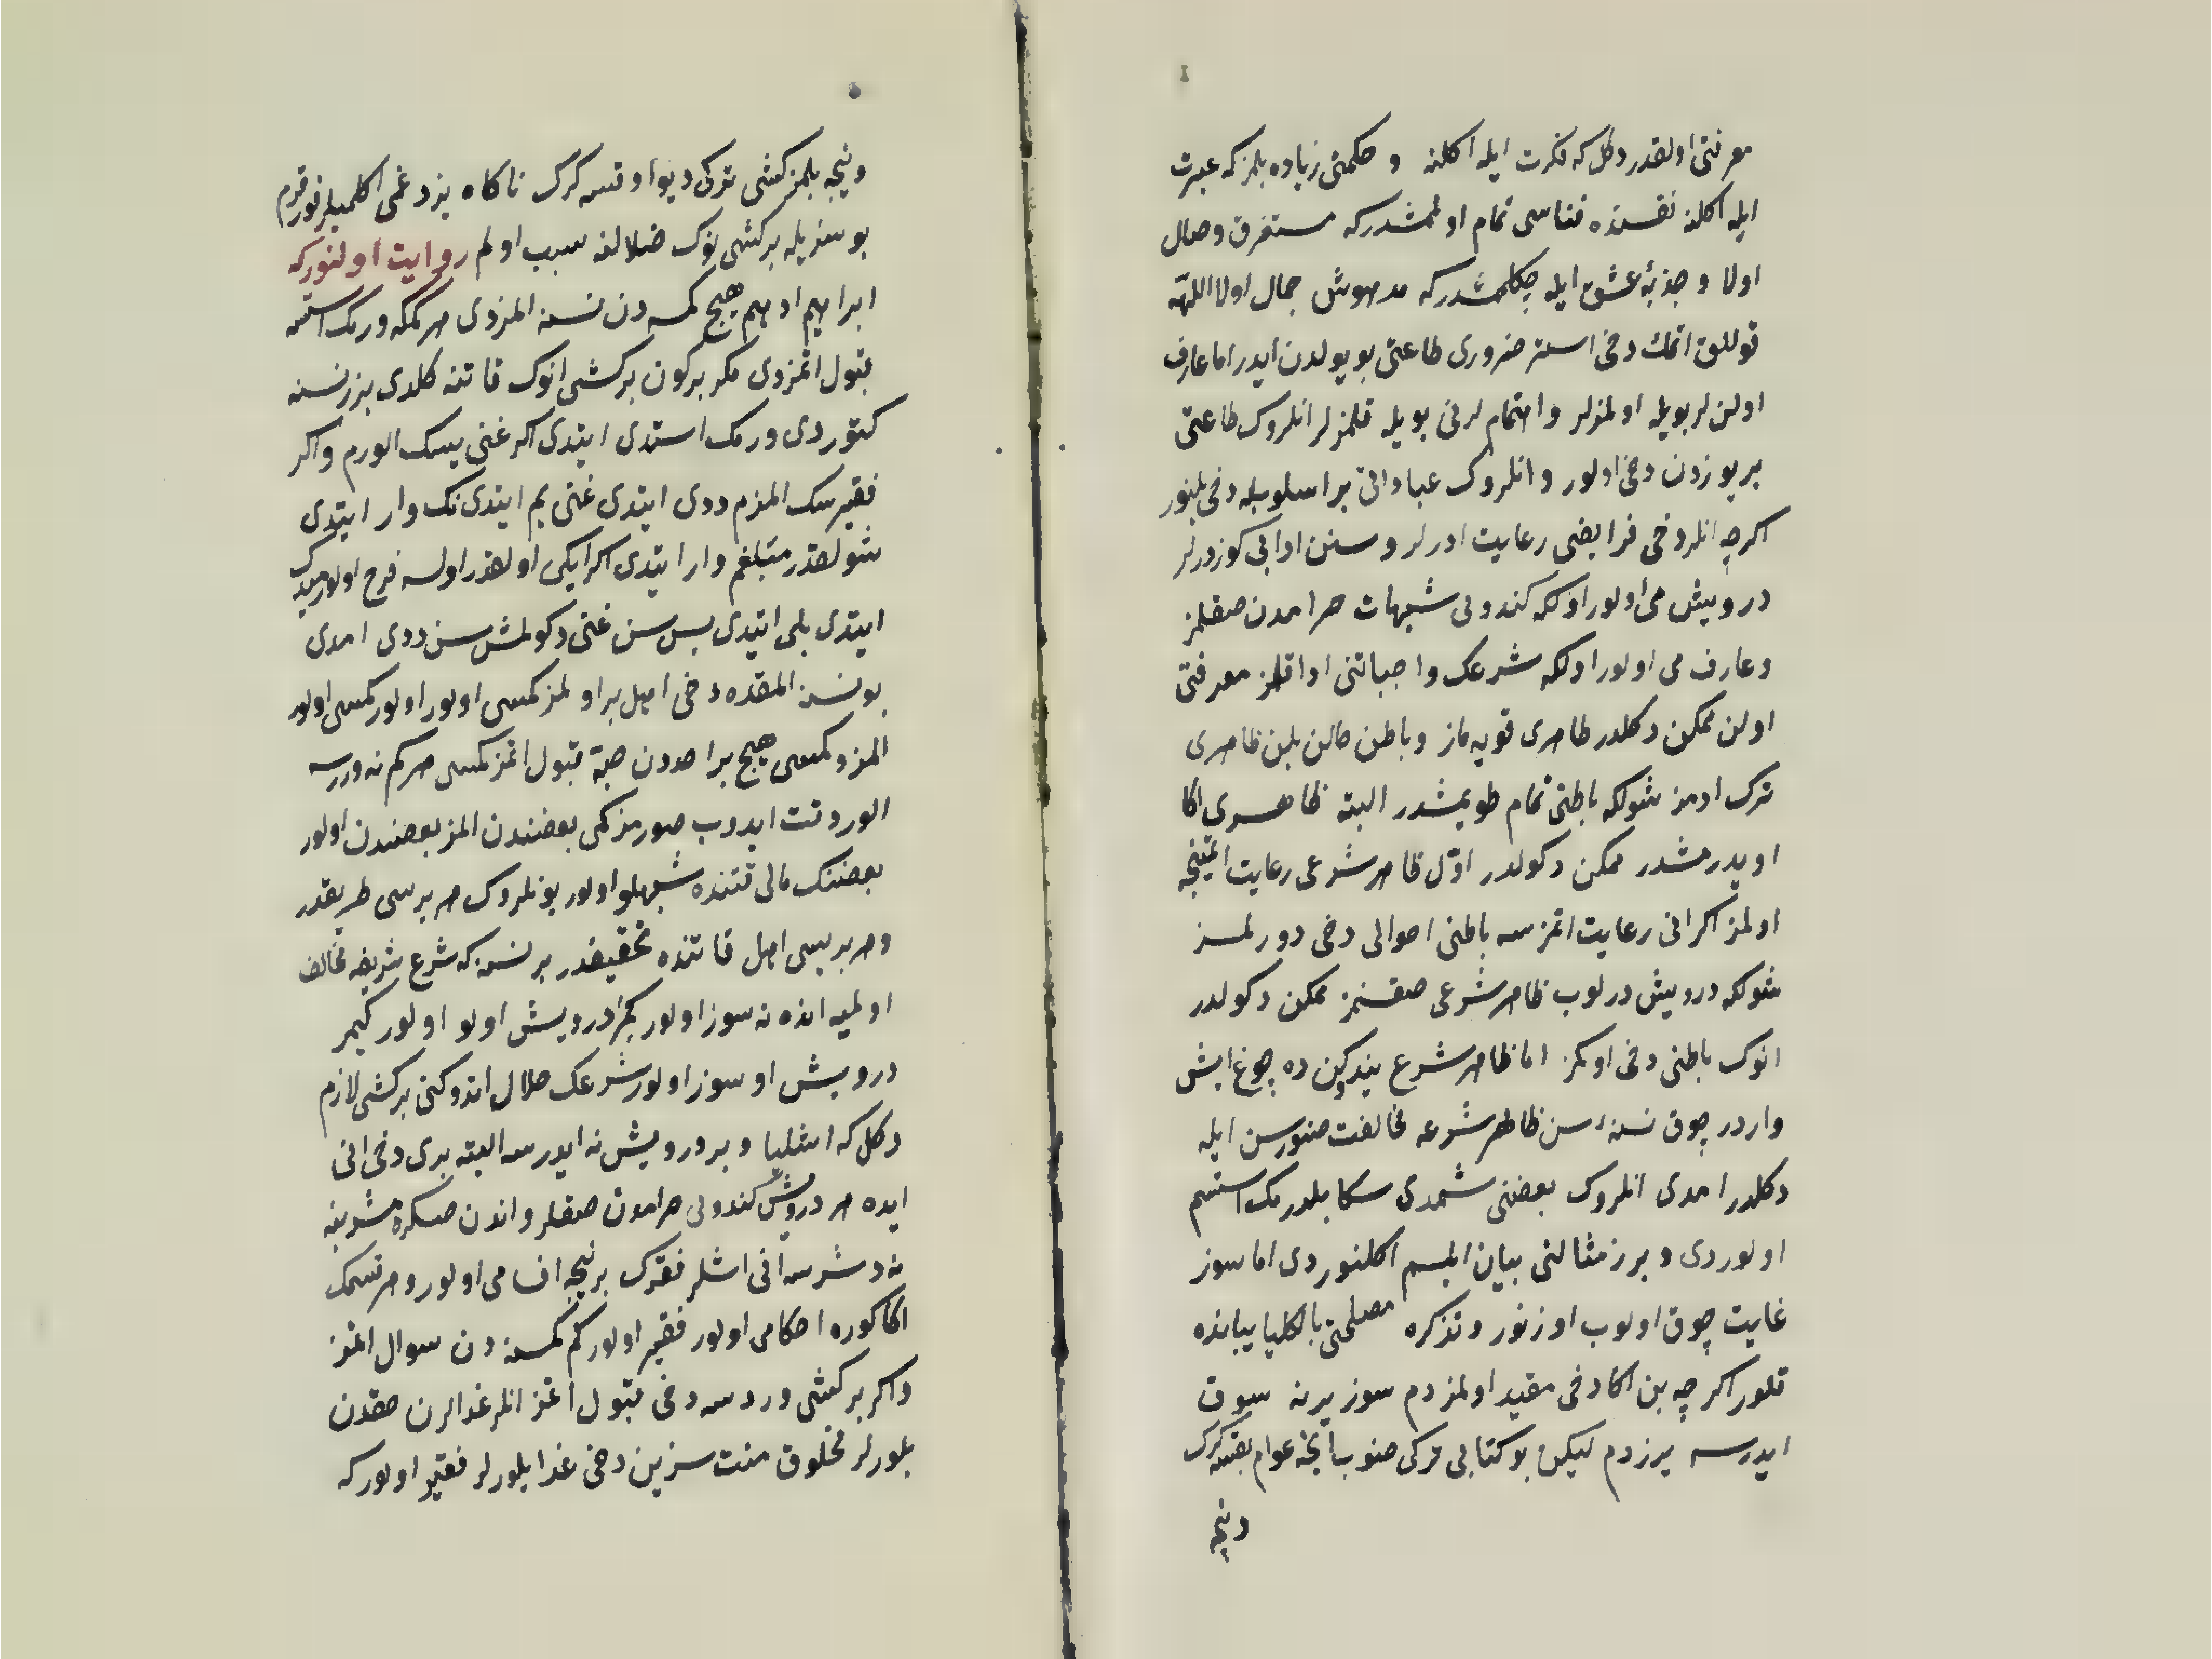 معرفتی اولقدر دکل که فکرت ایله اکلنه و حکمتی زیاده بلمز که عبرت
ایله اکلنه نفسنده فناسی تمام اولمشدر که مستغرق وصال
اولا و جذبۀ عشق ایله چکلمشدر که مدهوش جمال اولا اللهه
قوللق اتمك دخی استر ضروری طاعتی بو یولدن ایدر اما عارف
اولن لر بویله اولمزلر و اهتمام لرنی بویله قلمزلر انلروك طاعتی
بر یوزدن دخی اولور و انلروك عباداتی بر اسلوبله دخی بلنور
اکرچه انلر دخی فرایضی رعایت ادرلر و سنن ادابی کوزدرلر
درویش می اولور اولکه کندونی شبهات حرامدن صقلمز
و عارف می اولور اولکه شرعك واجباتنی ادا قلمز معرفتی
اولن ممکن دکلدر ظاهری قویه ماز و باطن حالن بلن ظاهری
ترك ادمز شولکه باطنی تمام طویمشدر البته ظاهری اکا
اویدرمشدر ممکن دکولدر اوّل ظاهر شرعی رعایت اتمینجه
اولمز اکر انی رعایت اتمزسه باطنی احوالی دخی دورلمز
شولکه درویش درلوب ظاهر شرعی صقنمز ممکن دکولدر
انوك باطنی دخی اوکمز اما ظاهر شرع ده چوغ ایش
واردر چوق نسنه سن ظاهر شرعه مخالفت صنورسن ایله
دکلدر امدی انلروك بعضنی شمدی سکا بلدرمك استسم
اولوردی و برر مثالنی بیان ایلسم اکلنوردی اما سوز
غایت چوق اولوب اوزنور و تذکره مصلحتی بالکلیا یبانده
قلور اکرچه بن اکا دخی مقید اولمزدم سوز یرنه سوق
ایدرسه یرزدم لیکن بو کتابی ترکی صنوب انجه عوام بقسه کرك
ونیجه
ونیجه بلمز کشی ترکی دیو اوقسه کرك ناکاه یزدغمی اکلمیلر قورقرم
بو سزیله بر کشی نوك ضلالنه سبب اولم روایت اولنور که
ابراهیم ادهم هیچ کمسه دن نسنه المزدی هر کمکه ورمك استسه
قبول اتمزدی مکر بر کون بر کشی انوك قاتنه کلدی بزر نسنه
کتوردی ورمك استدی ایتدی اکر غنی یسك الورم و اکر
فقیرسك المزم ددی ایتدی غنی یم ایتدی نك وار ایتدی
شولقدر مبلغم وار ایتدی اکر ایکی اولقدر اولسه فرح اولورمیدك
ایتدی بلی ایتدی بس سن غنی دکولمش سن ددی امدی
بو نسنه المقده دخی اهل بر اولمز کمسی اولور اولور کمسی اولور
المز و کمسی هیچ بر احددن حبّه قبول اتمز کمسی هر کم نه وررسه
الور دقت ایدوب صورمز کمی بعضندن المز بعضندن اولور
بعضنك مالی قتنده شبهلو اولور بونلروك هر برسی طریقدر
و هر بریسی اهل قاتنده تحقیقدر بر نسنه که شرع شریفه مخالف
اولمیه انده نه سوز اولور درویش اولو اولور کیمر
درویش او سوز اولور شرعك حلال اتدوکنی بر کشی لازم
دکل که اشلیا و بر درویش نه ایدرسه البته بری دخی انی
ایده هر درویش کندونی حرامدن صقلر و اندن صکره مشربنه
نه دشرسه انی اشلر فقرك بر نیجه اقسامی اولور و هر قسمك
اکا کوره احکامی اولور فقیر اولور کم کمسنه دن سوال اتمز
و اکر بر کشی وردسه دخی قبول اتمز انلر غدالرن حقدن
بلورلر مخلوق منت سزین دخی غدا بلورلر فقیر اولور که